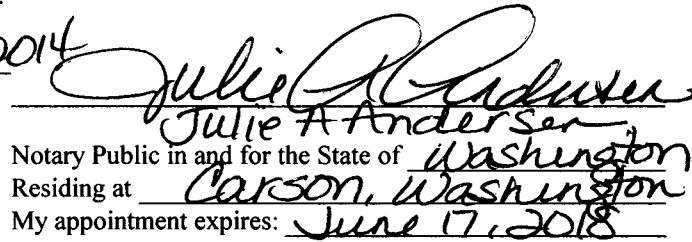 2014
Julie A Andersen
Julie A Andersen
Notary Public in and for the State of Washington
Residing at Carson, Washington
My appointment expires: June 17, 2018